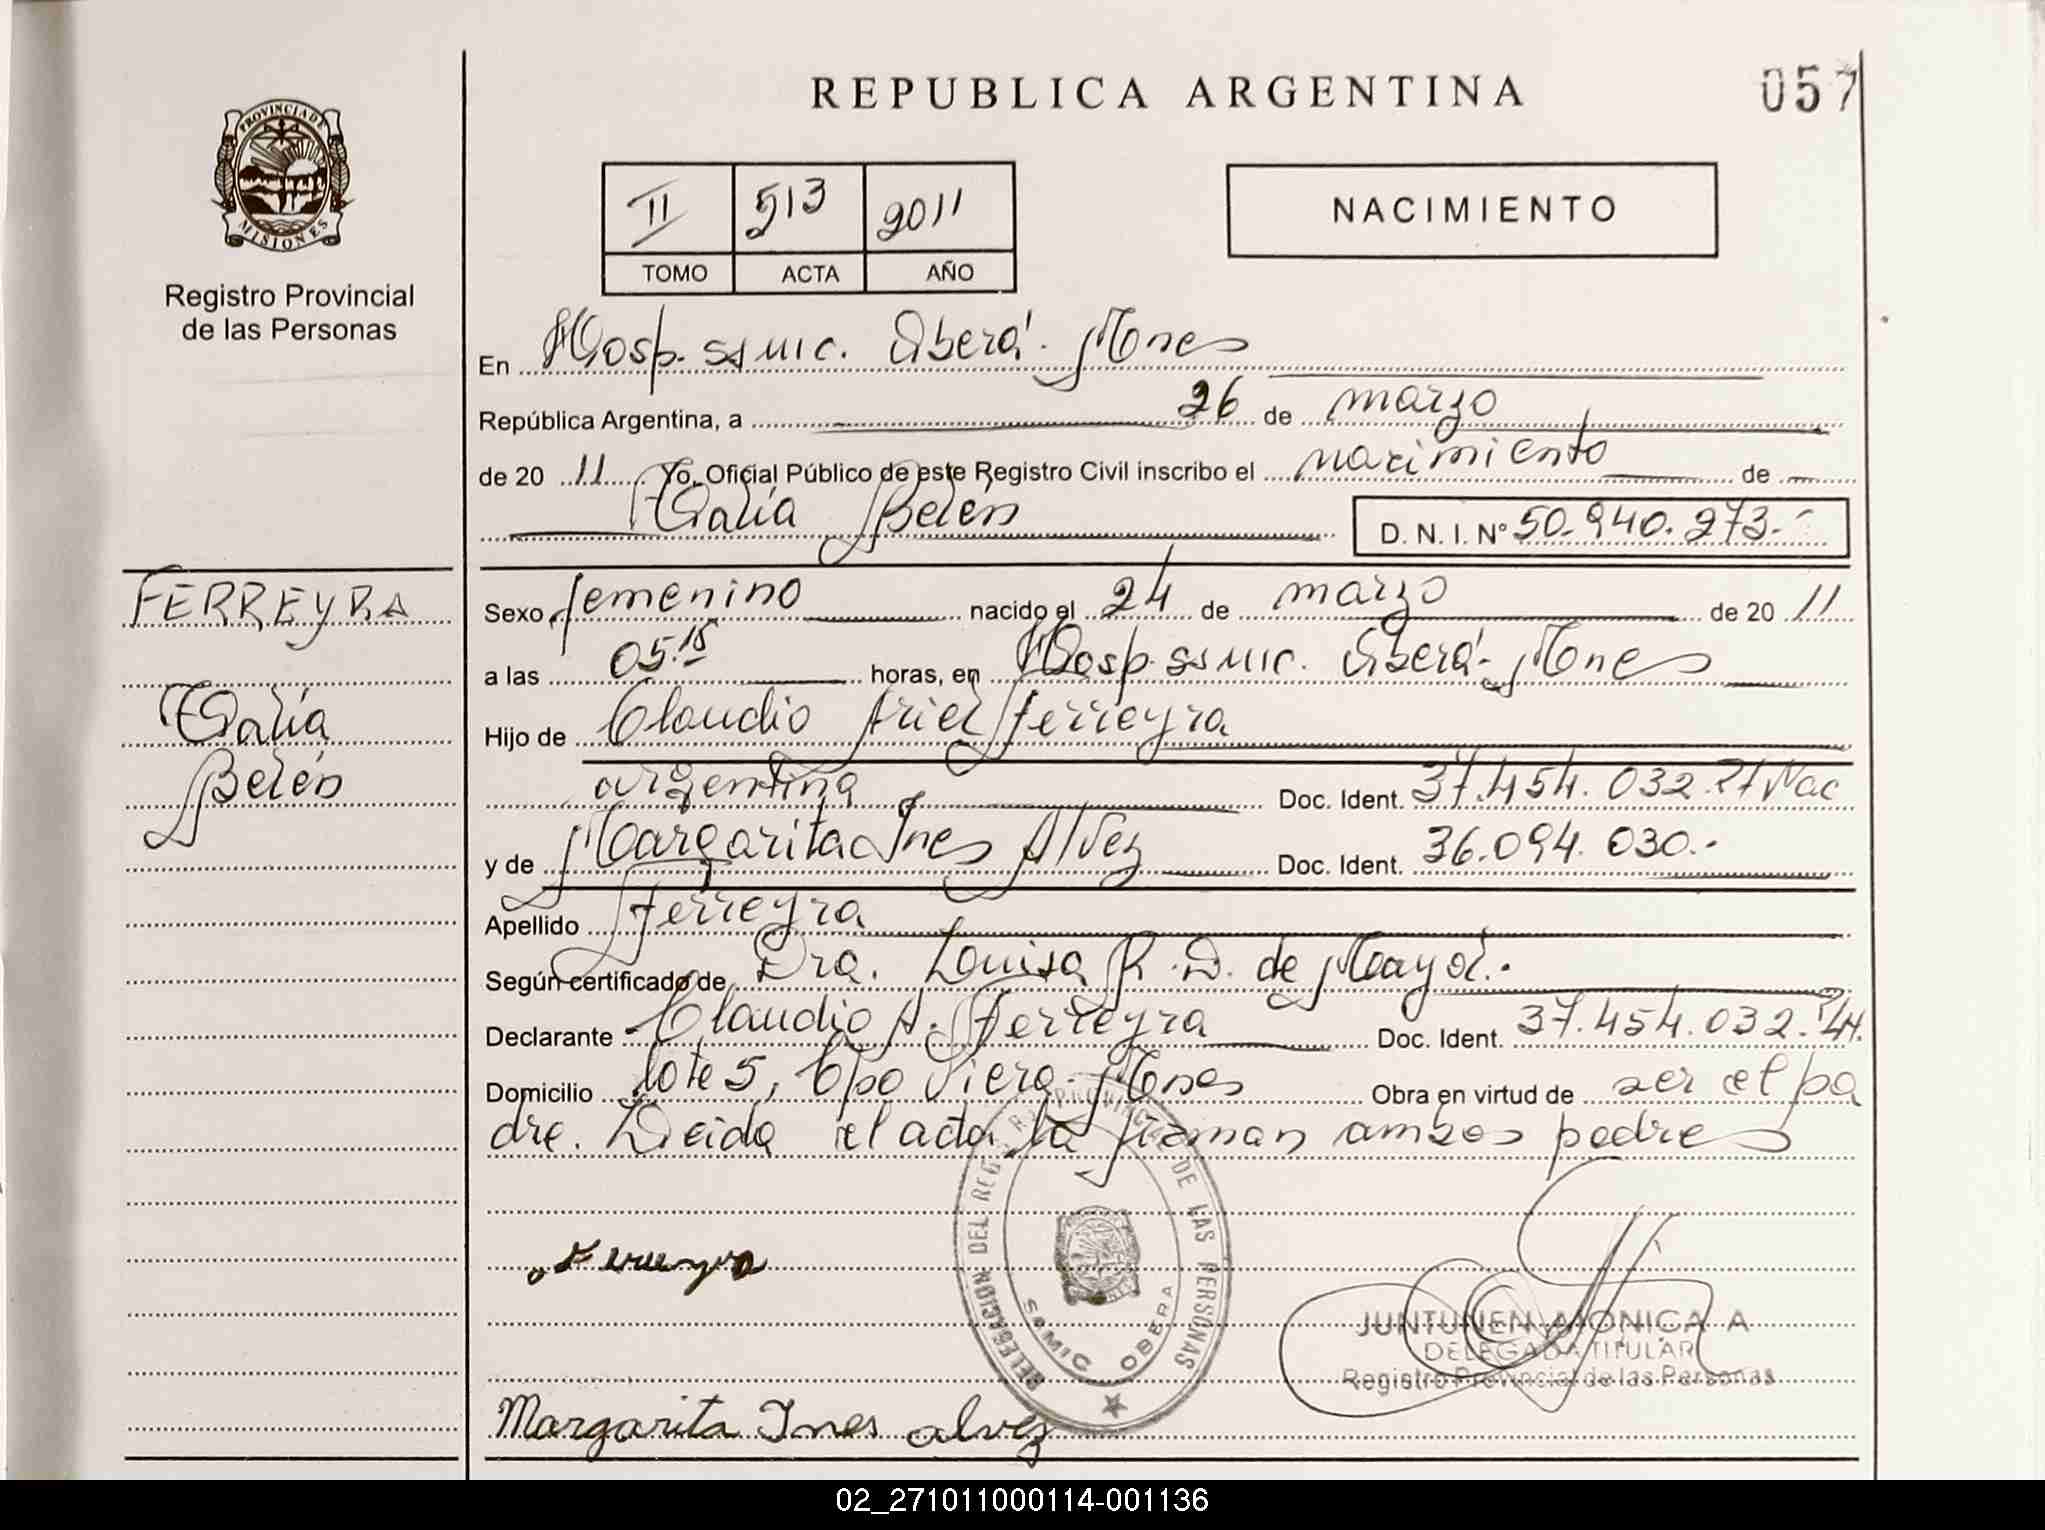 REPUBLICA ARGENTINA
057
PROVINCIA DE
MISIONES
Registro Provincial
de las Personas
II 513 2011
TOMO ACTA AÑO
NACIMIENTO
En Hosp. ssmic. Oberá. Mnes
República Argentina, a 26 de marzo
de 20 11 Yo, Oficial Público de este Registro Civil inscribo el nacimiento de
Talía Belén D. N. I. Nº 50.940.273.-
FERREYRA
Talía
Belén
Sexo femenino nacido el 24 de marzo de 20 11
a las 05.15 horas, en Hosp. ssmic. Oberá. Mnes
Hijo de Claudio Ariel Ferreyra
argentina Doc. Ident. 37.454.032 Nac
y de Margarita Ines Alvez Doc. Ident. 36.094.030.-
Apellido Ferreyra
Según certificado de Dra. Louisa R. D. de Mayol.
Declarante Claudio A. Ferreyra Doc. Ident. 37.454.032.
Domicilio lote 5, Cpo Viera. Mnes Obra en virtud de ser el pa
dre. Leida el acta la firman ambos padres
DELEGACION DEL REG. PROVINCIAL DE LAS PERSONAS
SAMIC OBERA
Ferreyra
JUNTUNEN MONICA A
DELEGADA TITULAR
Registro Provincial de las Personas
Margarita Ines alvez
02_271011000114-001136